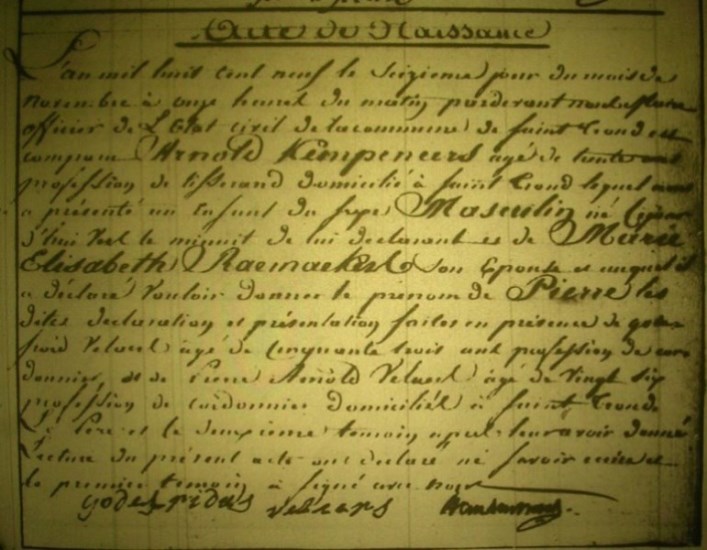 Acte de Naissance
L'an mil huit cent neuf le Seizieme jour du mois de
novembre à onze heures du matin pardevant nous
officier de L'Etat civil de la commune de Saint Trond est
comparu Arnold Kempeneers agé de trente
profession de tisserand domicilié à Saint Trond lequel nous
a présenté un Enfant du sexe Masculin né
d'hui vers le minuit de lui declarant et de Marie
Elisabeth Raemaekers son Epouse et auquel il
a déclaré vouloir donner le prenom de Pierre les
dites declaration et présentation faites en présence de gode
froid Velaers agé de Cinquante trois ans profession de cor
donnier et de Pierre Arnold Velaers agé de Vingt six
profession de cordonnier domiciliés à Saint Trond
Le Père et le deuxieme temoin après leur avoir donné
Lecture du présent acte ont declaré ne savoir ecrire et
le premier temoin à signé avec nous
godefridus velaers